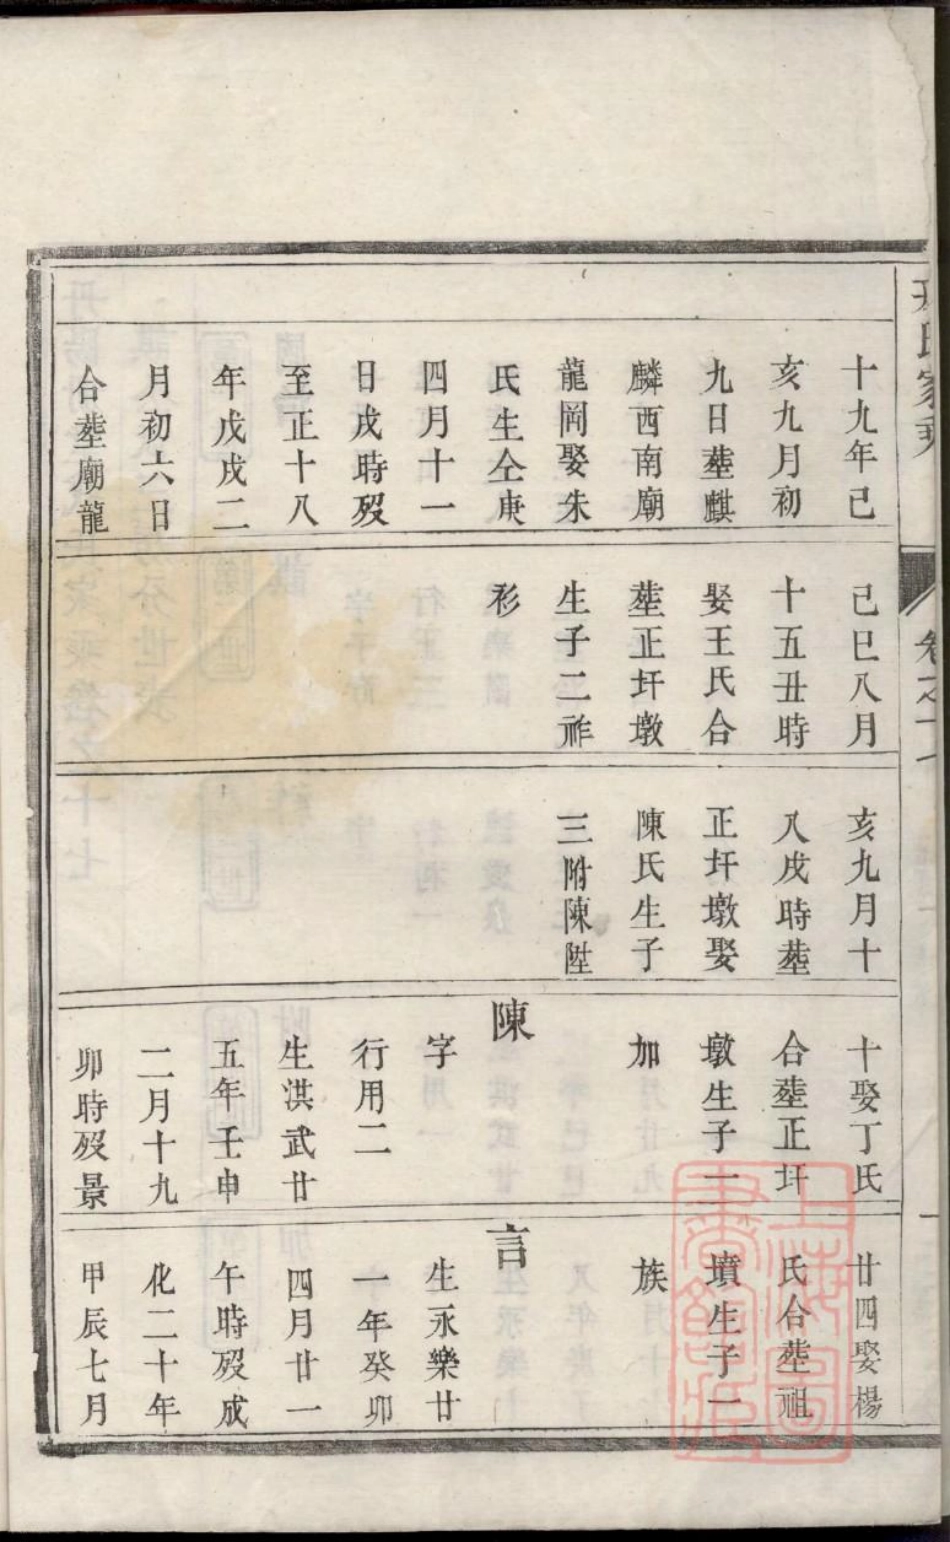 氏家乘
卷之十七
一
十九年己
亥九月初
九日塟麒
麟西南廟
龍岡娶朱
氏生仝庚
四月十一
日戌時歿
至正十八
年戊戌二
月初六日
合塟廟龍
己巳八月
十五丑時
娶王氏合
塟正圩墩
生子二祚
衫
亥九月十
八戌時塟
正圩墩娶
陳氏生子
三附陳陞
十娶丁氏
合塟正圩
墩生子一
加
陳
字
行用二
生洪武廿
五年壬申
二月十九
卯時歿景
廿四娶楊
氏合塟祖
墳生子一
族
言
生永樂廿
一年癸卯
四月廿一
午時歿成
化二十年
甲辰七月
上海圖
書館藏